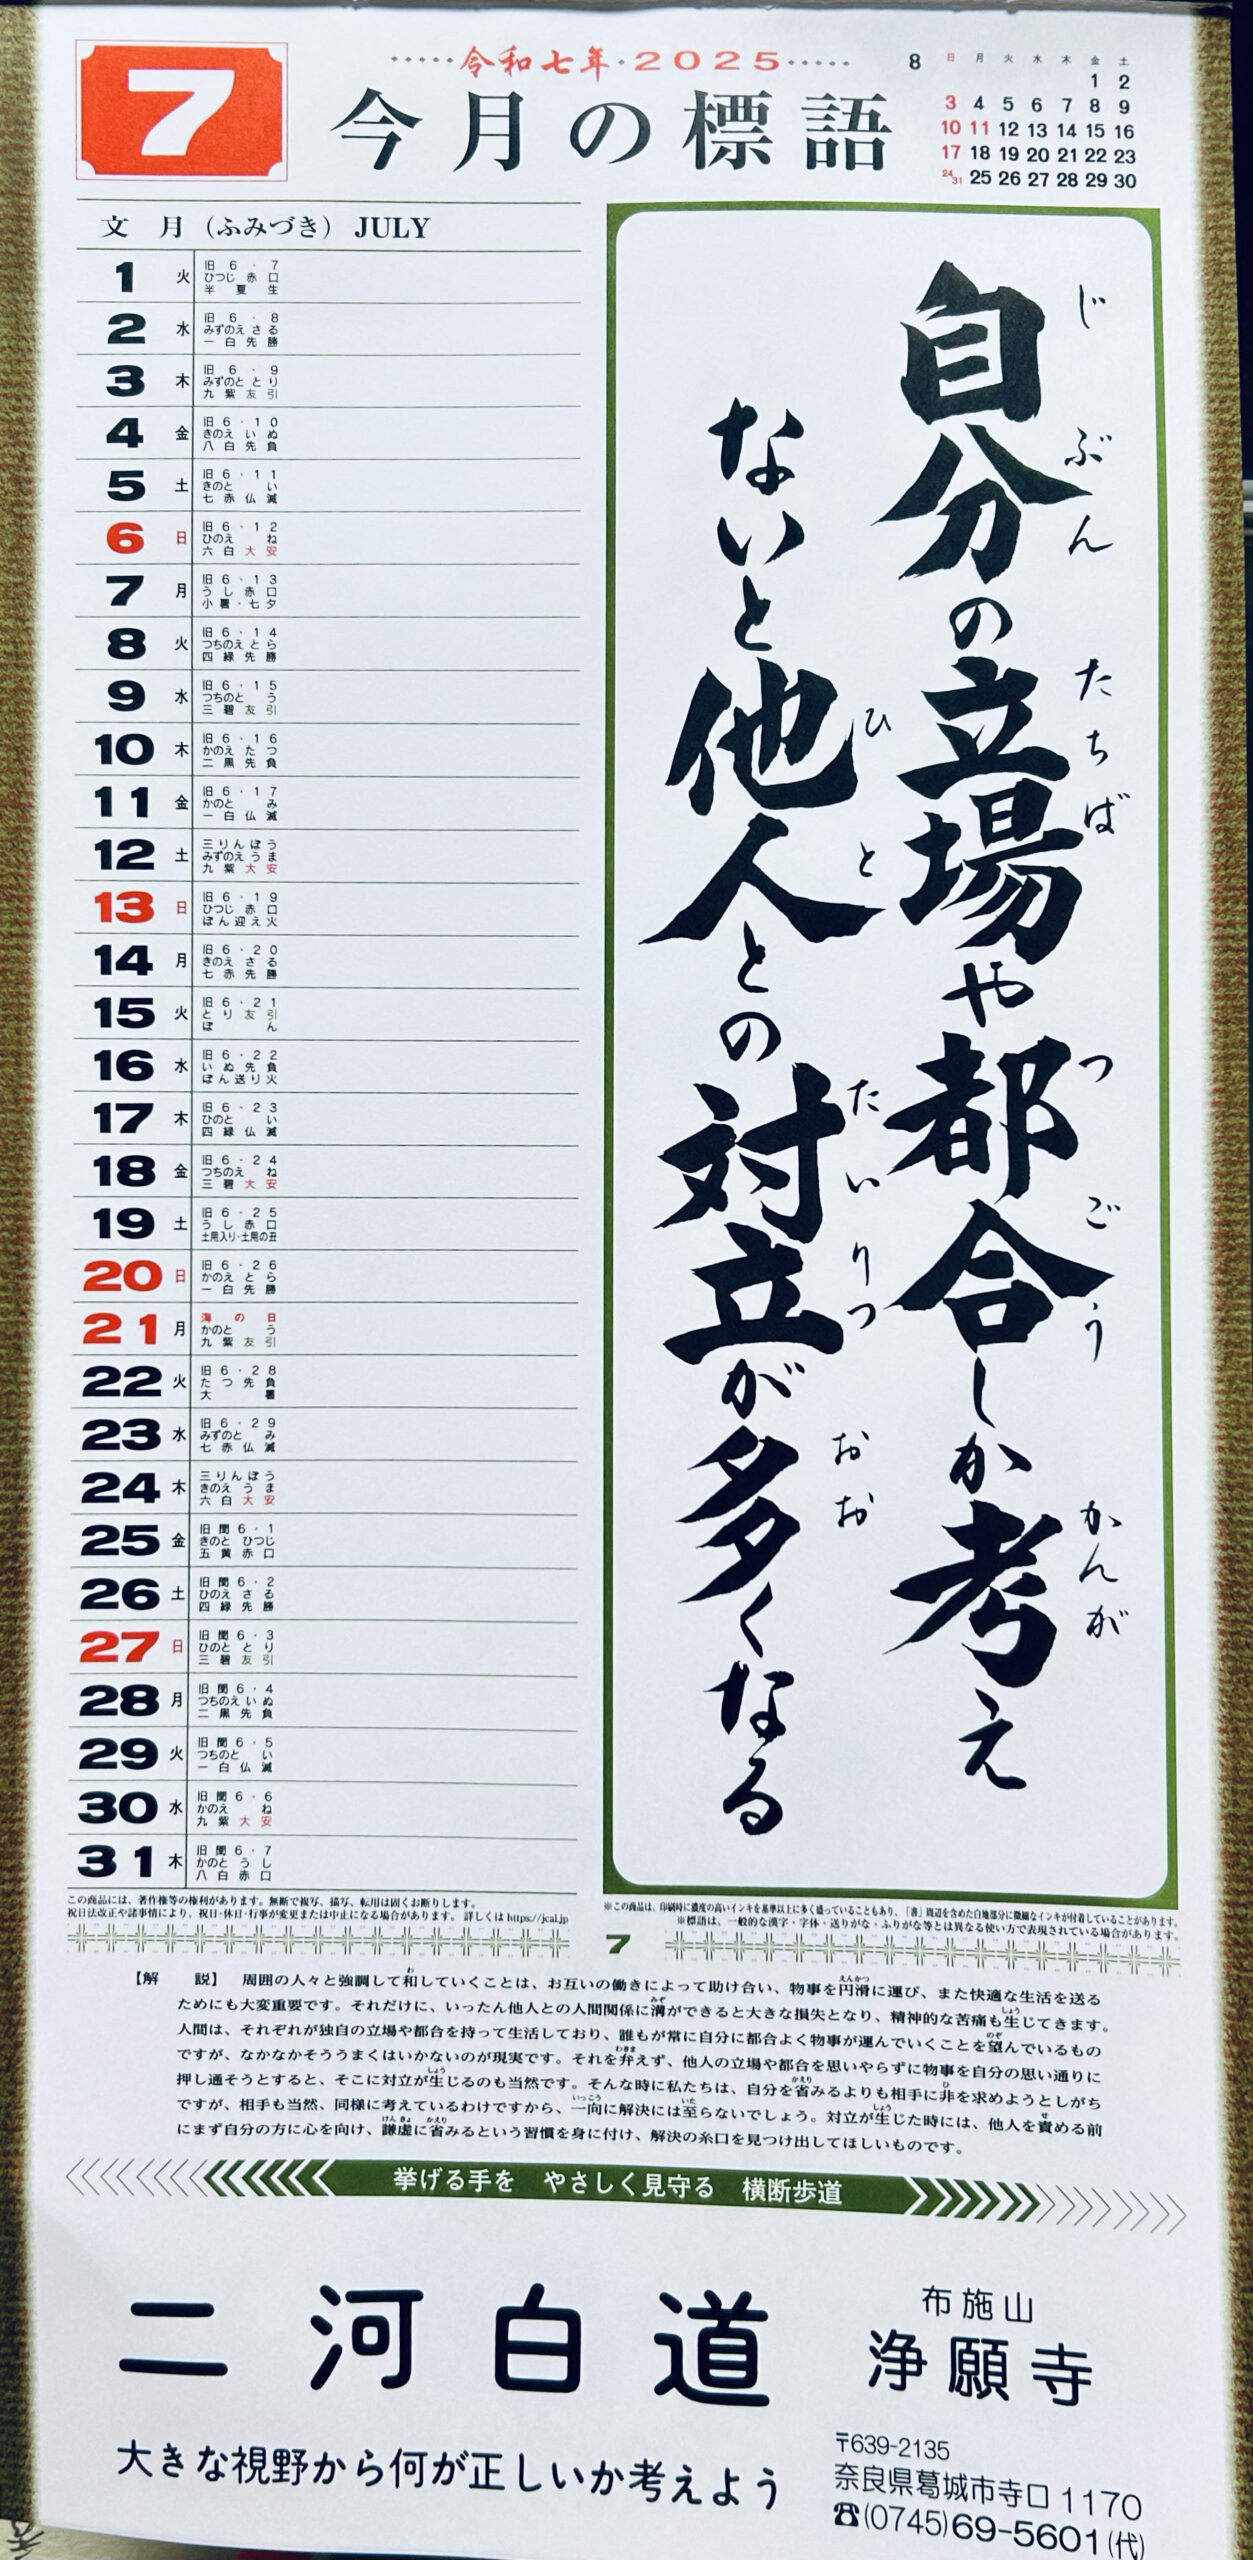 7
令和七年・2025
今月の標語
8 日 月 火 水 木 金 土
1 2
3 4 5 6 7 8 9
10 11 12 13 14 15 16
17 18 19 20 21 22 23
24 31 25 26 27 28 29 30
文月(ふみづき) JULY
1 火 旧6・7
ひつじ 赤口
半夏生
2 水 旧6・8
みずのえ さる
一白先勝
3 木 旧6・9
みずのと とり
九紫友引
4 金 旧6・10
きのえ いぬ
八白先負
5 土 旧6・11
きのと い
七赤仏滅
6 日 旧6・12
ひのえ ね
六白大安
7 月 旧6・13
うし 赤口
小暑・七夕
8 火 旧6・14
つちのえ とら
四緑先勝
9 水 旧6・15
つちのと う
三碧友引
10 木 旧6・16
かのえ たつ
二黒先負
11 金 旧6・17
かのと み
一白仏滅
12 土 三りんぼう
みずのえ うま
九紫大安
13 日 旧6・19
ひつじ 赤口
ぼん迎え火
14 月 旧6・20
きのえ さる
七赤先勝
15 火 旧6・21
とり 友引
ぼん
16 水 旧6・22
いぬ 先負
ぼん送り火
17 木 旧6・23
ひのと い
四緑仏滅
18 金 旧6・24
つちのえ ね
三碧大安
19 土 旧6・25
うし 赤口
土用入り・土用の丑
20 日 旧6・26
かのえ とら
一白先勝
21 月 海の日
かのと う
九紫友引
22 火 旧6・28
たつ 先負
大暑
23 水 旧6・29
みずのと み
七赤仏滅
24 木 三りんぼう
きのえ うま
六白大安
25 金 旧閏6・1
きのと ひつじ
五黄赤口
26 土 旧閏6・2
ひのえ さる
四緑先勝
27 日 旧閏6・3
ひのと とり
三碧友引
28 月 旧閏6・4
つちのえ いぬ
二黒先負
29 火 旧閏6・5
つちのと い
一白仏滅
30 水 旧閏6・6
かのえ ね
九紫大安
31 木 旧閏6・7
かのと うし
八白赤口
じぶん たちば つごう かんが
自分の立場や都合しか考え
ひと たいりつ おお
ないと他人との対立が多くなる
この商品には、著作権等の権利があります。無断で複写、描写、転用は固くお断りします。
祝日法改正や諸事情により、祝日・休日・行事が変更または中止になる場合があります。 詳しくは https://jcal.jp
※この商品は、印刷時に濃度の高いインキを基準以上に多く盛っていることもあり、「書」周辺を含めた白地部分に微細なインキが付着していることがあります。
※標語は、一般的な漢字・字体・送りがな・ふりがな等とは異なる使い方で表現されている場合があります。
7
【解 説】 周囲の人々と強調して和していくことは、お互いの働きによって助け合い、物事を円滑に運び、また快適な生活を送る
ためにも大変重要です。それだけに、いったん他人との人間関係に溝ができると大きな損失となり、精神的な苦痛も生じてきます。
人間は、それぞれが独自の立場や都合を持って生活しており、誰もが常に自分に都合よく物事が運んでいくことを望んでいるもの
ですが、なかなかそううまくはいかないのが現実です。それを弁えず、他人の立場や都合を思いやらずに物事を自分の思い通りに
押し通そうとすると、そこに対立が生じるのも当然です。そんな時に私たちは、自分を省みるよりも相手に非を求めようとしがち
ですが、相手も当然、同様に考えているわけですから、一向に解決には至らないでしょう。対立が生じた時には、他人を責める前
にまず自分の方に心を向け、謙虚に省みるという習慣を身に付け、解決の糸口を見つけ出してほしいものです。
挙げる手を やさしく見守る 横断歩道
二河白道
布施山
浄願寺
大きな視野から何が正しいか考えよう
〒639-2135
奈良県葛城市寺口1170
☎(0745)69-5601(代)